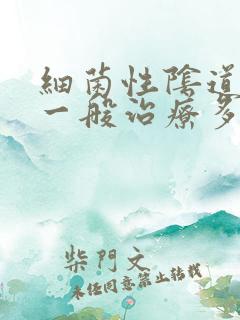 細菌性陰道
一般治療多
柴門文
未經同意禁止轉載